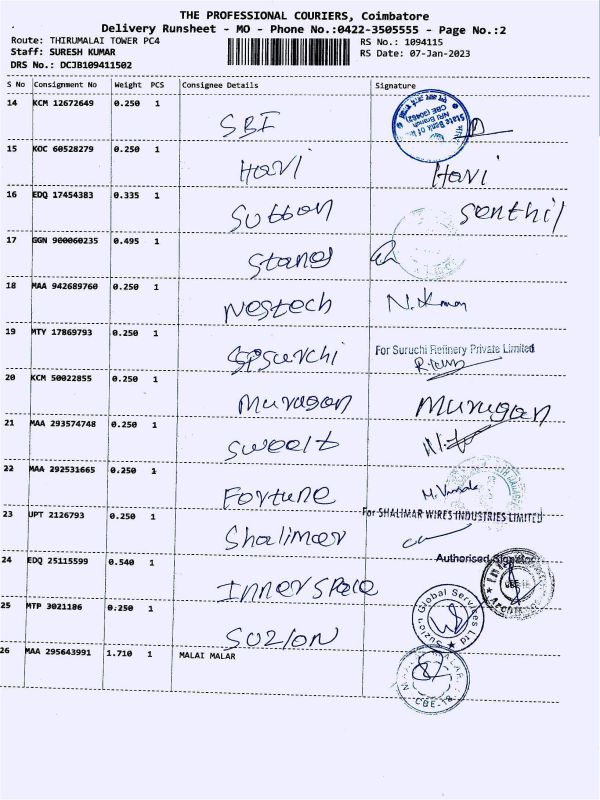 THE PROFESSIONAL COURIERS, Coimbatore
Delivery Runsheet - MO - Phone No.:0422-3505555 - Page No.:2
Route: THIRUMALAI TOWER PC4
RS No.: 1094115
Staff: SURESH KUMAR
RS Date: 07-Jan-2023
DRS No.: DCJB109411502
S No Consignment No Weight PCS Consignee Details Signature
14 KCM 12672649 0.250 1 SBI
State Bank of
NRI Branch
CBE (30462)
15 KOC 60528279 0.250 1 Havi Havi
16 EDQ 17454383 0.335 1 Sutton Senthil
17 GGN 900060235 0.495 1 Stanes
18 MAA 942689760 0.250 1 Nestech
19 MTY 17869793 0.250 1 For Suruchi Refinery Private Limited
20 KCM 50022855 0.250 1 Murugan Murugan
21 MAA 293574748 0.250 1
22 MAA 292531665 0.250 1 Fortune
23 UPT 2126793 0.250 1 Shalimar For SHALIMAR WIRES INDUSTRIES LIMITED
Authorised Signatory
24 EDQ 25115599 0.540 1 Innerspace
25 MTP 3021186 0.250 1 SUZLON
Suzlon Global Services Ltd
26 MAA 295643991 1.710 1 MALAI MALAR
CBE-18